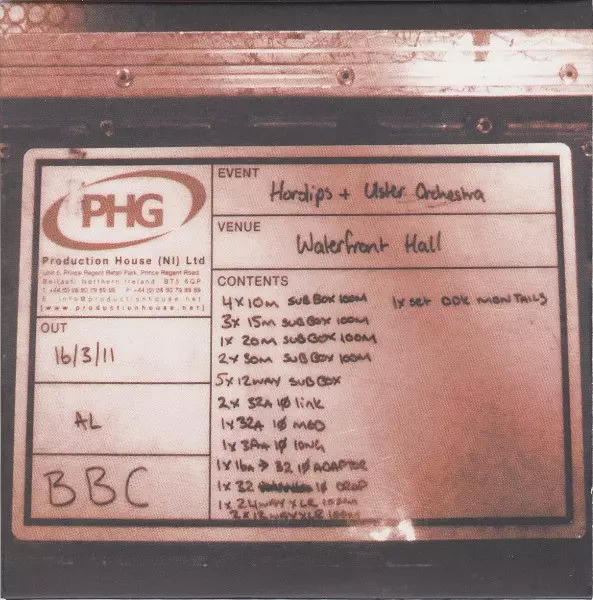 PHG
Production House (NI) Ltd
Unit 6, Prince Regent Retail Park, Prince Regent Road,
Belfast, Northern Ireland BT5 6QP
[www.productionhouse.net]
OUT
16/3/11
AL
BBC
EVENT
Horslips + Ulster Orchestra
VENUE
Waterfront Hall
CONTENTS
4 x 10m SUB BOX 100M
3x 15m SUB BOX 100M
1x 20m SUB BOX 100M
2x 30m SUB BOX 100M
5 x 12 WAY SUB BOX
2 x 32A 1Ø link
1 x 32A 1Ø MOD
1 x 32A 1Ø LONG
1 x 16A → 32 1Ø ADAPTOR
1 x 32 1Ø DROP
1 x 24 WAY XLR
2 x 12 WAY XLR
1x set MON TAILS